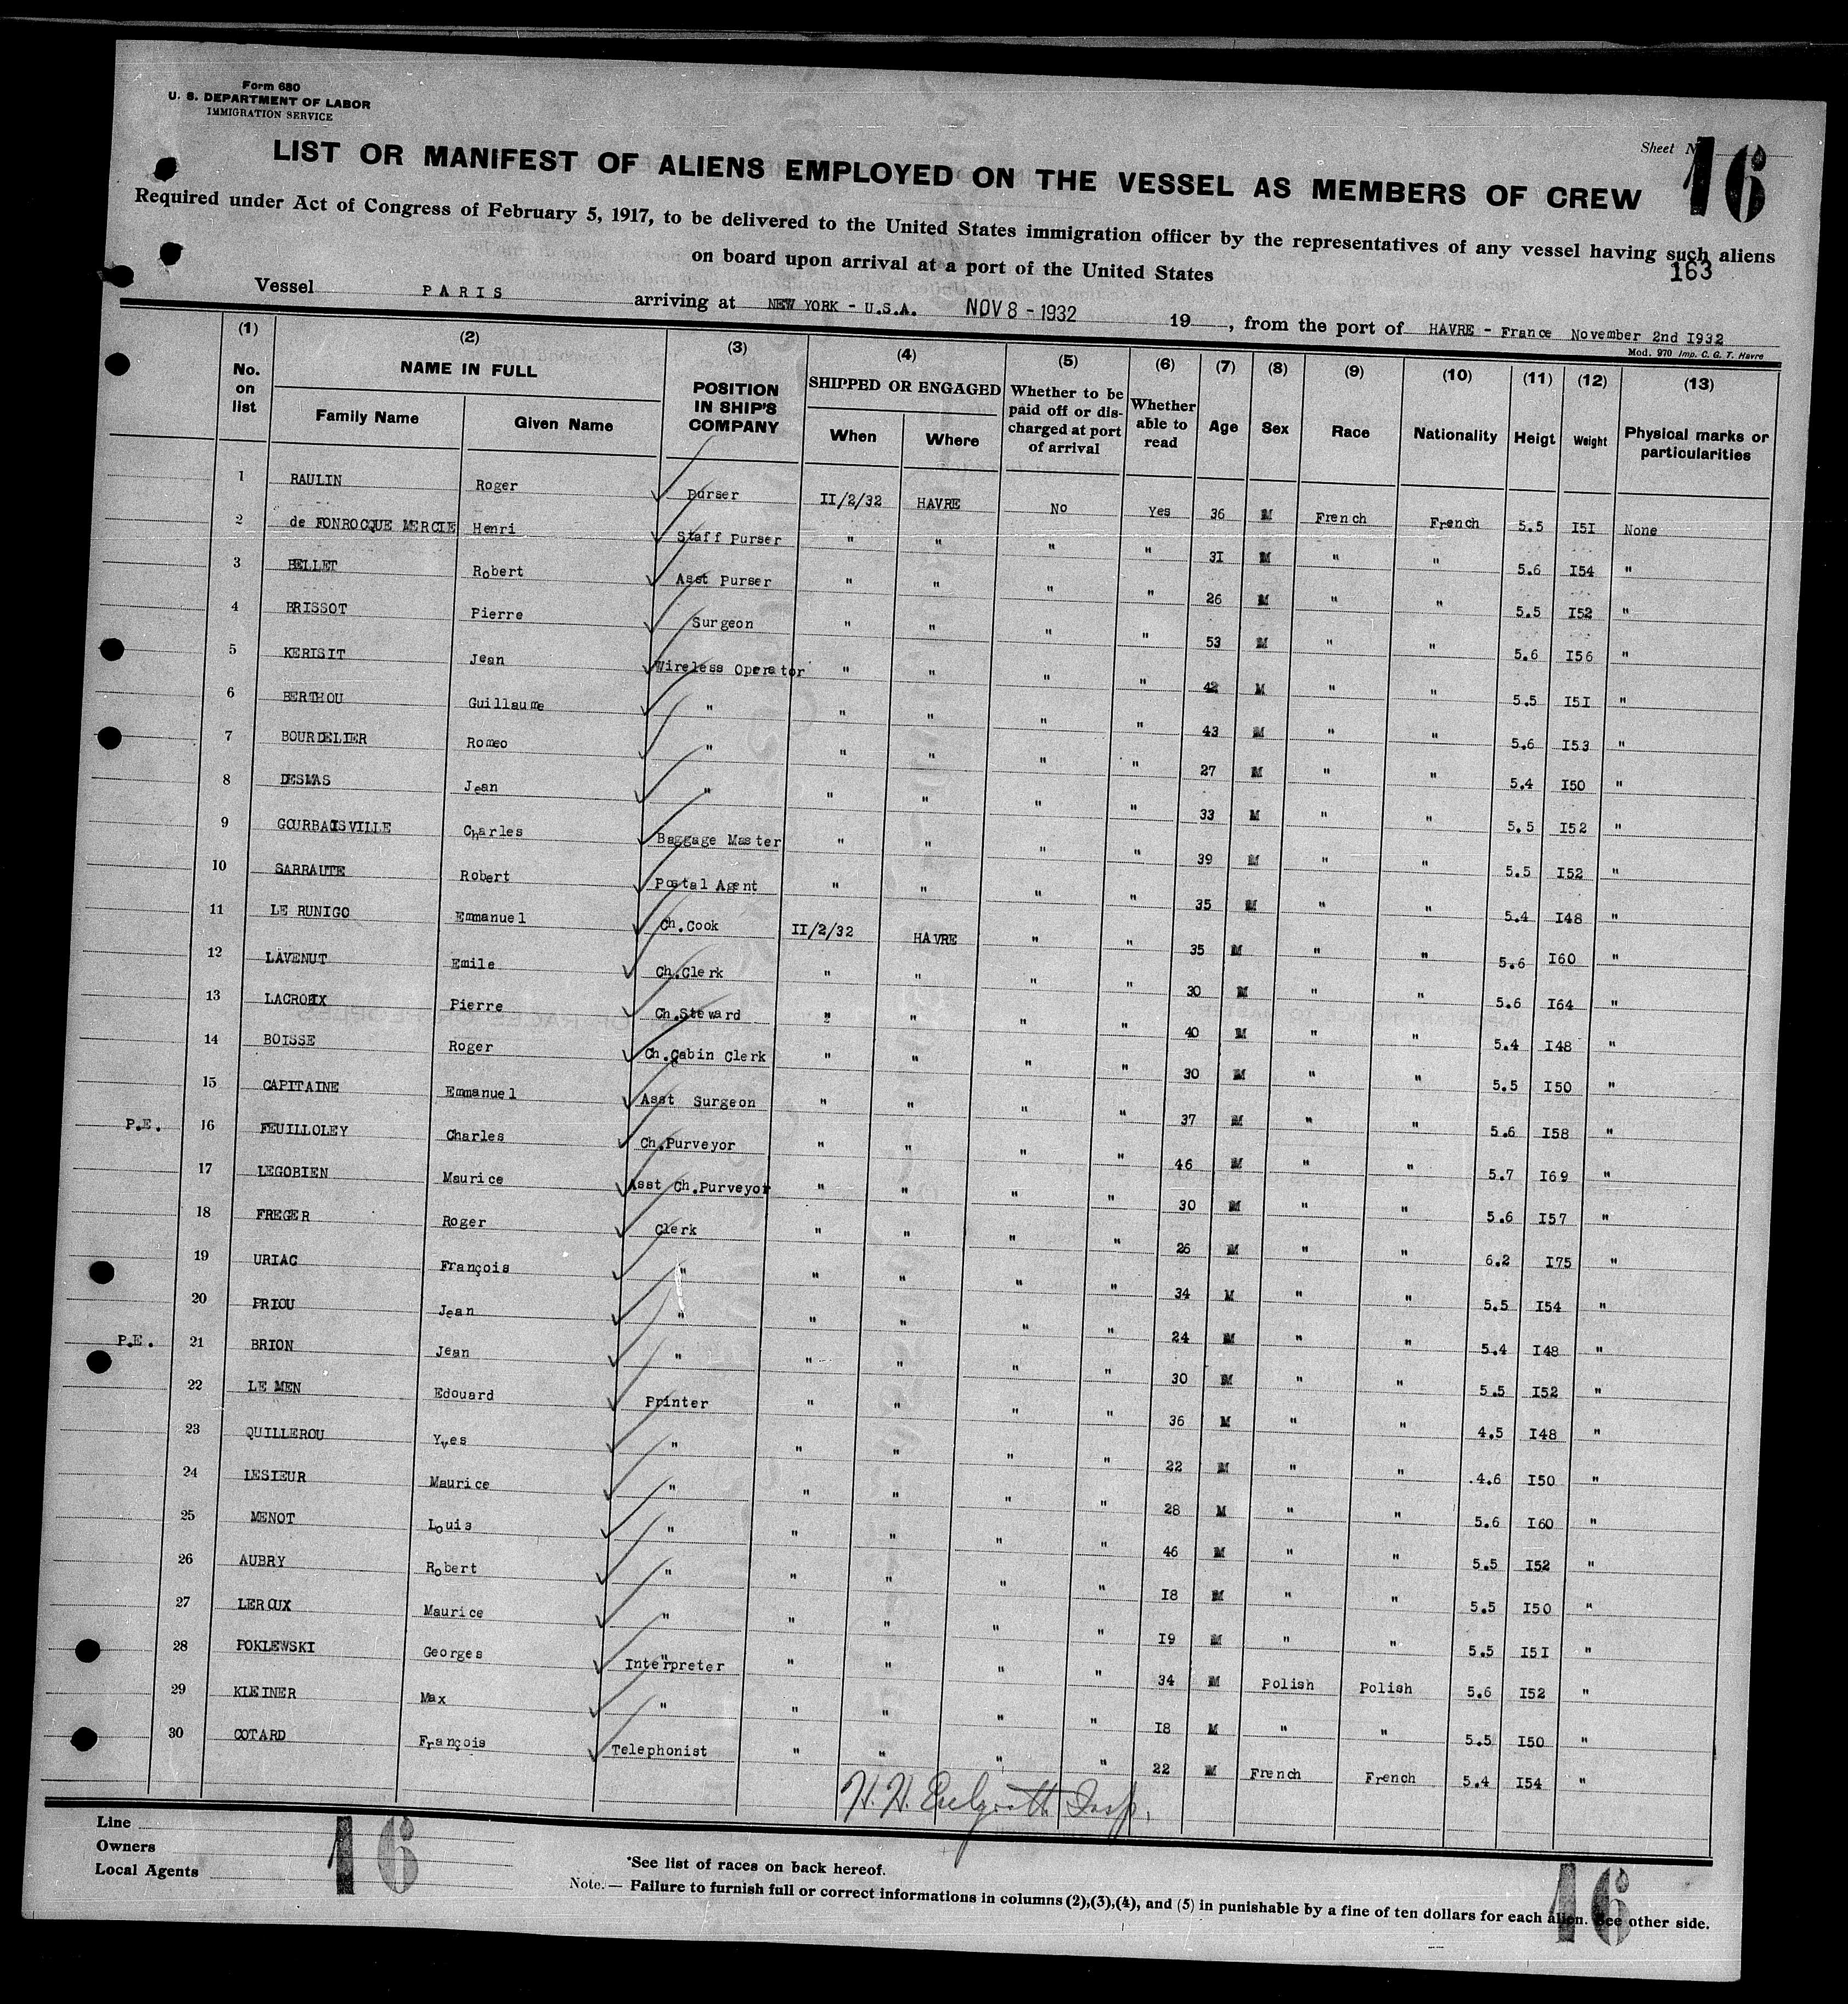 Form 680
U. S. DEPARTMENT OF LABOR
IMMIGRATION SERVICE
Sheet N
16
LIST OR MANIFEST OF ALIENS EMPLOYED ON THE VESSEL AS MEMBERS OF CREW
Required under Act of Congress of February 5, 1917, to be delivered to the United States immigration officer by the representatives of any vessel having such aliens
on board upon arrival at a port of the United States
163
Vessel PARIS arriving at NEW YORK - U.S.A. NOV 8 - 1932 19 , from the port of HAVRE - France November 2nd I932
Mod. 970 Imp. C. G. T. Havre
(1) (2) (3) (4) (5) (6) (7) (8) (9) (10) (11) (12) (13)
No. on list NAME IN FULL Family Name Given Name POSITION IN SHIP'S COMPANY SHIPPED OR ENGAGED When Where Whether to be paid off or discharged at port of arrival Whether able to read Age Sex Race Nationality Heigt Weight Physical marks or particularities
1 RAULIN Roger purser II/2/32 HAVRE No Yes 36 M French French 5.5 I5I None
2 de FONROCQUE MERCIE Henri Staff Purser " " " " 3I M " " 5.6 I54 "
3 BELLET Robert Asst Purser " " " " 26 M " " 5.5 I52 "
4 BRISSOT Pierre Surgeon " " " " 53 M " " 5.6 I56 "
5 KERISIT Jean Wireless Operator " " " " 42 M " " 5.5 I5I "
6 BERTHOU Guillaume " " " " " 43 M " " 5.6 I53 "
7 BOURDELIER Romeo " " " " " 27 M " " 5.4 I50 "
8 DESMAS Jean " " " " " 33 M " " 5.5 I52 "
9 GOURBAISVILLE Charles Baggage Master " " " " 39 M " " 5.5 I52 "
10 SARRAUTE Robert Postal Agent " " " " 35 M " " 5.4 I48 "
11 LE RUNIGO Emmanuel Ch.Cook II/2/32 HAVRE " " 35 M " " 5.6 I60 "
12 LAVENUT Emile Ch.Clerk " " " " 30 M " " 5.6 I64 "
13 LACROIX Pierre Ch.Steward " " " " 40 M " " 5.4 I48 "
14 BOISSE Roger Ch.Cabin Clerk " " " " 30 M " " 5.5 I50 "
15 CAPITAINE Emmanuel Asst Surgeon " " " " 37 M " " 5.6 I58 "
P.E. 16 FEUILLOLEY Charles Ch.Purveyor " " " " 46 M " " 5.7 I69 "
17 LEGOBIEN Maurice Asst Ch.Purveyor " " " " 30 M " " 5.6 I57 "
18 FREGER Roger Clerk " " " " 26 M " " 6.2 I75 "
19 URIAC François " " " " " 34 M " " 5.5 I54 "
20 PRIOU Jean " " " " " 24 M " " 5.4 I48 "
P.E. 21 BRION Jean " " " " " 30 M " " 5.5 I52 "
22 LE MEN Edouard Printer " " " " 36 M " " 4.5 I48 "
23 QUILLEROU Yves " " " " " 22 M " " .4.6 I50 "
24 LESIEUR Maurice " " " " " 28 M " " 5.6 I60 "
25 MENOT Louis " " " " " 46 M " " 5.5 I52 "
26 AUBRY Robert " " " " " I8 M " " 5.5 I50 "
27 LEROUX Maurice " " " " " I9 M " " 5.5 I5I "
28 POKLEWSKI Georges Interpreter " " " " 34 M Polish Polish 5.6 I52 "
29 KLEINER Max " " " " " I8 M " " 5.5 I50 "
30 COTARD François Telephonist " " " " 22 M French French 5.4 I54 "
Line
Owners
Local Agents
16
*See list of races on back hereof.
Note. — Failure to furnish full or correct informations in columns (2),(3),(4), and (5) in punishable by a fine of ten dollars for each alien. See other side.
16